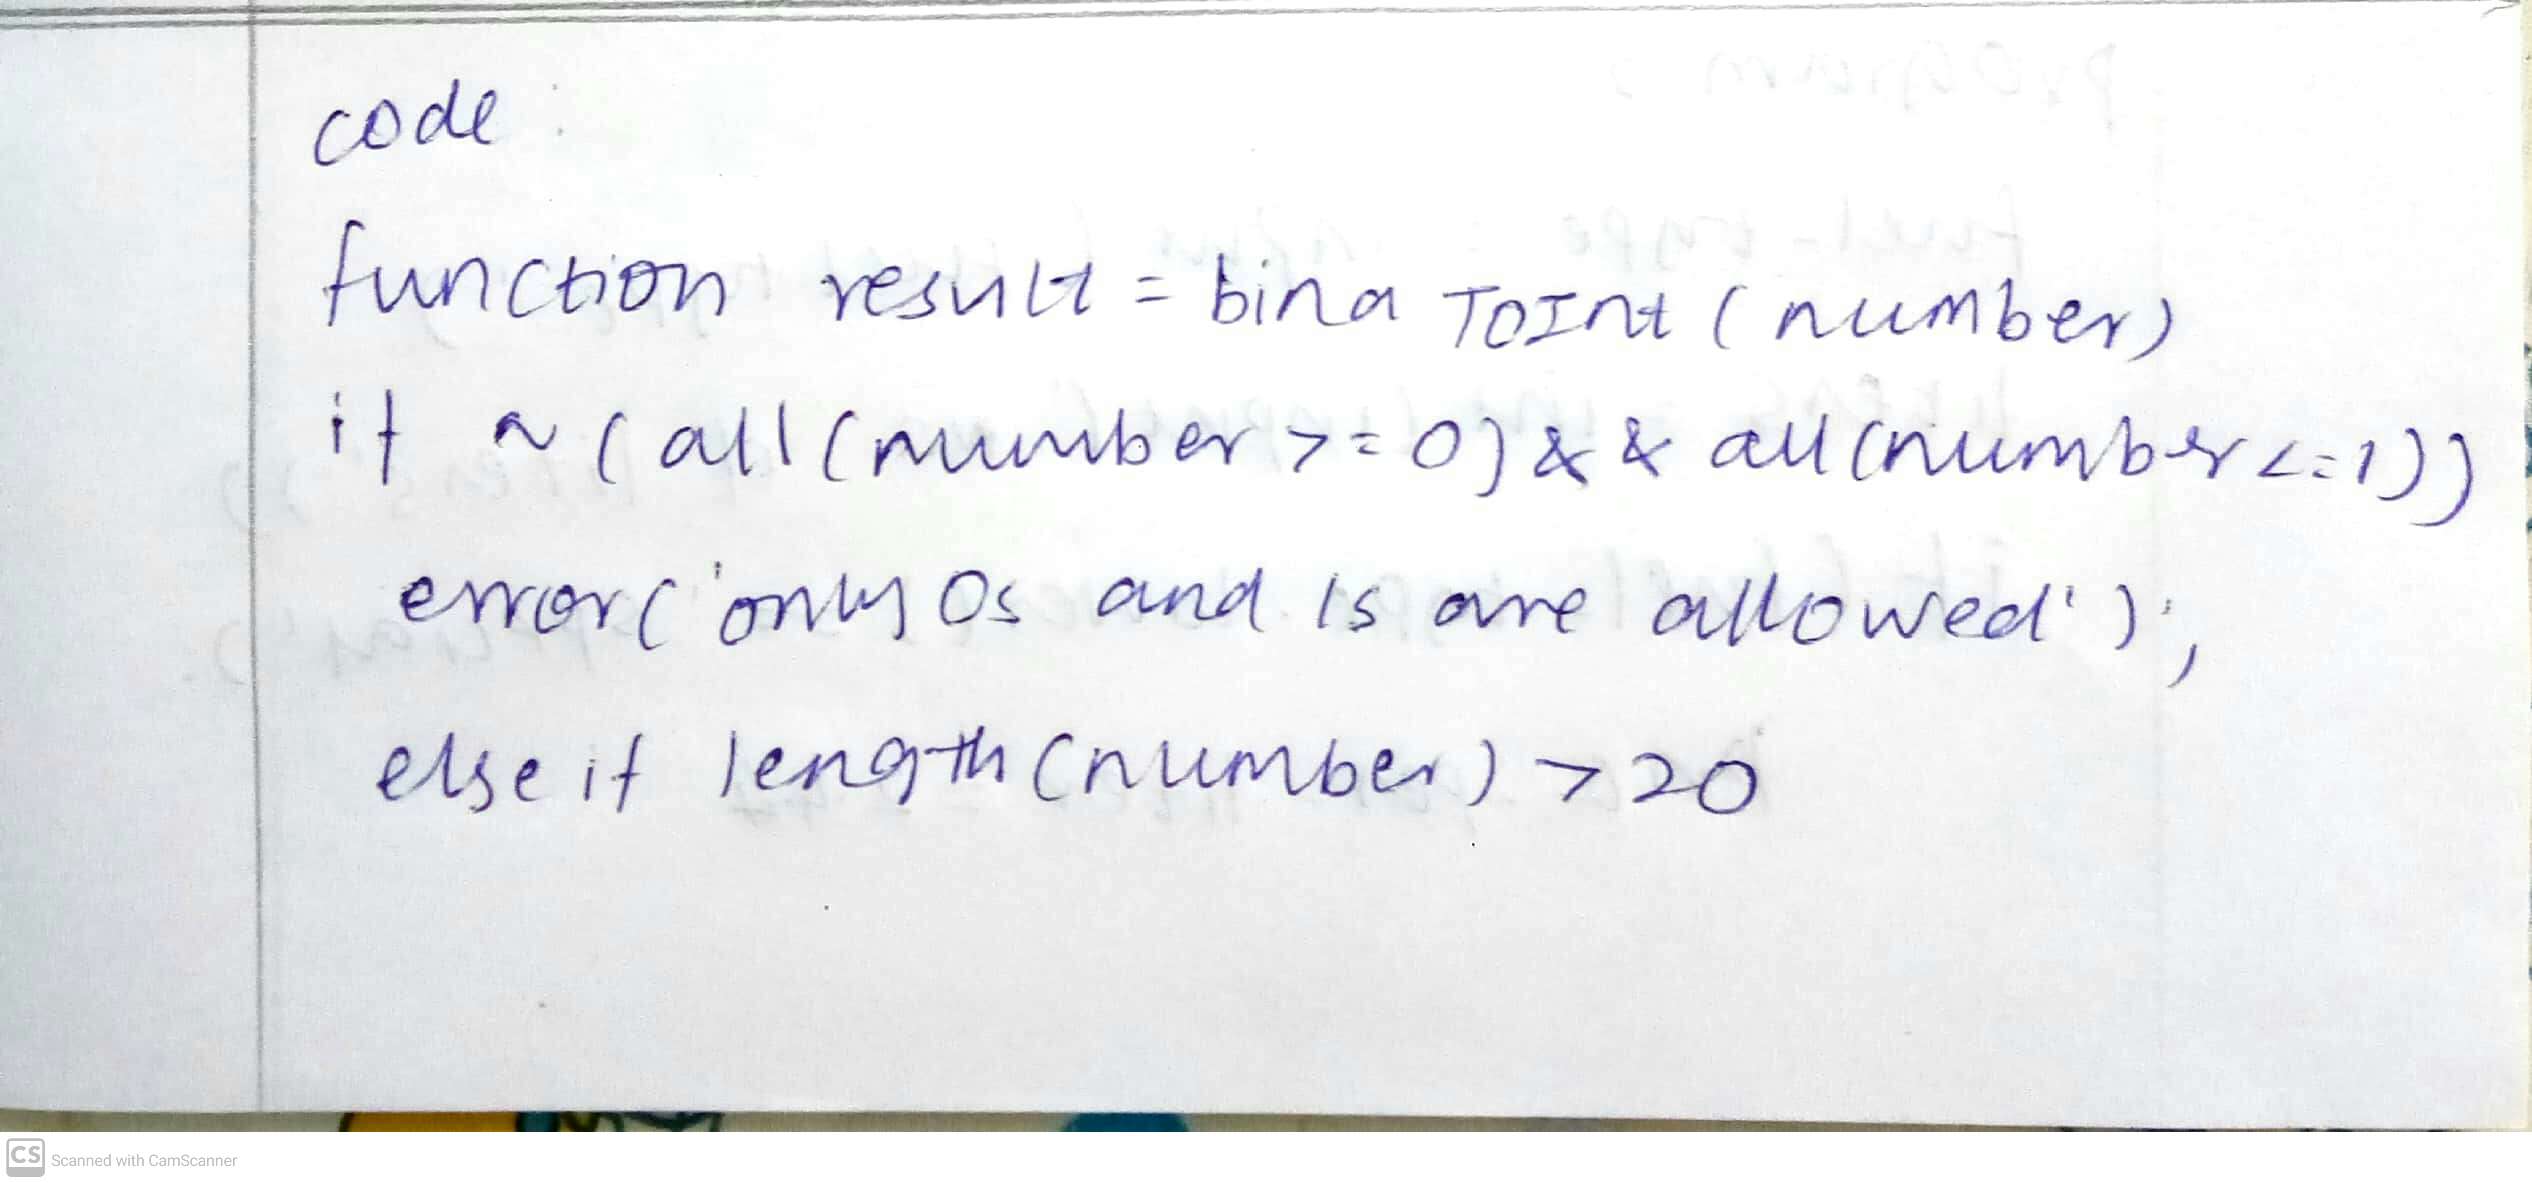 code :
function result = bina ToInt (number)
if ~ (all (number >= 0) && all (number <= 1))
error ('only 0s and 1s are allowed');
else if length (number) > 20
CS Scanned with CamScanner